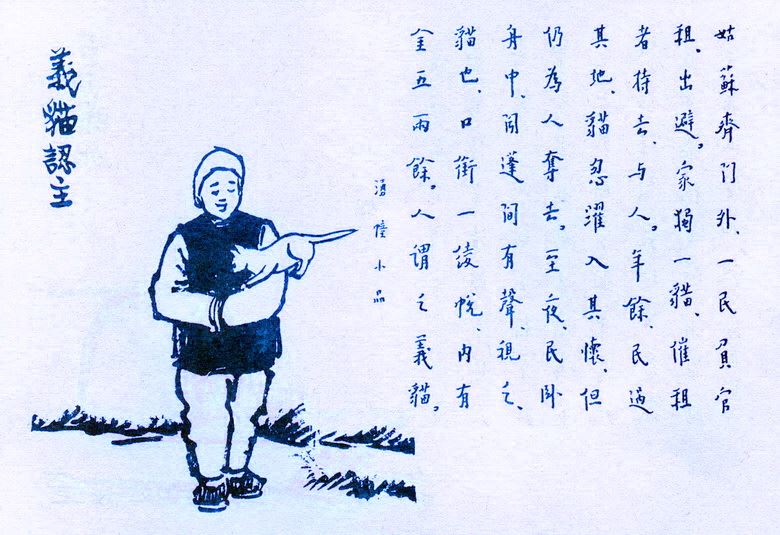 姑蘇齊門外、一民負官
租、出避。家獨一貓、催租
者持去、与人。年餘、民過
其地、貓忽濯入其懷、但
仍為人奪去。至夜、民卧
舟中、聞蓬間有聲、視之、
貓也、口銜一綾帨、內有
金五兩餘。人謂之義貓。
湧幢小品
義貓認主